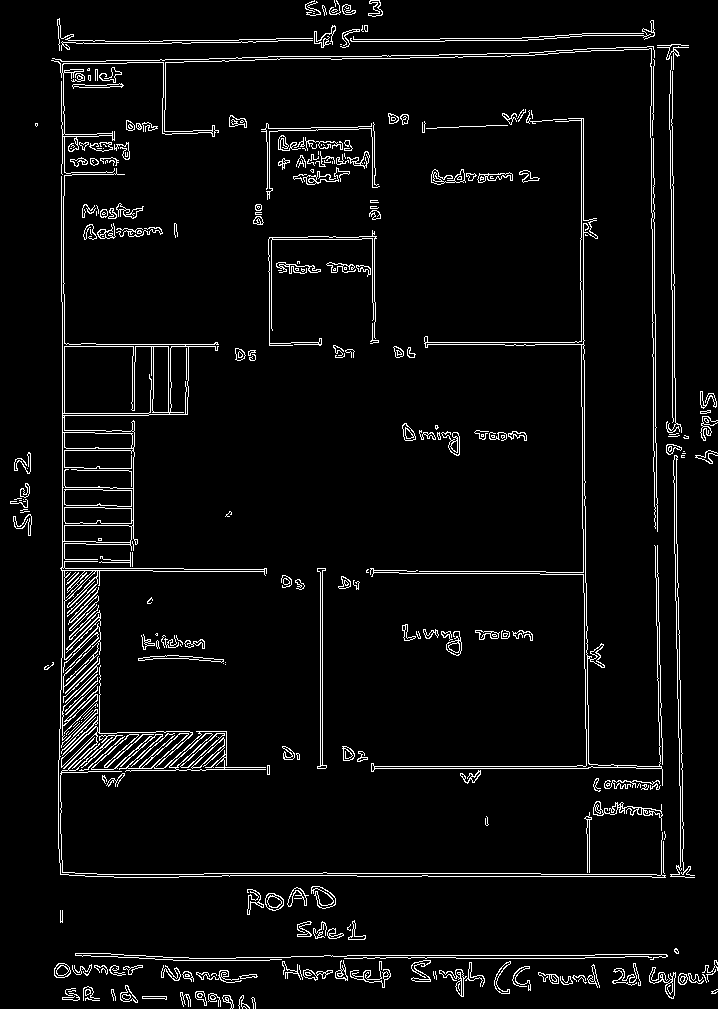 Side 3
Toilet
D012
D9
D8
W
dressing
room
Bedrooms
+ Attached
toilet
Bedroom 2
Master
Bedroom 1
D10
D11
W
Store room
D5
D7
D6
Dining room
Side 2
Side 4
51'6"
D3
D4
Kitchen
Living room
W
D1
D2
W
W
Common
ROAD
Side 1
Owner Name - Hardeep Singh (Ground 2d layout)
SR id -